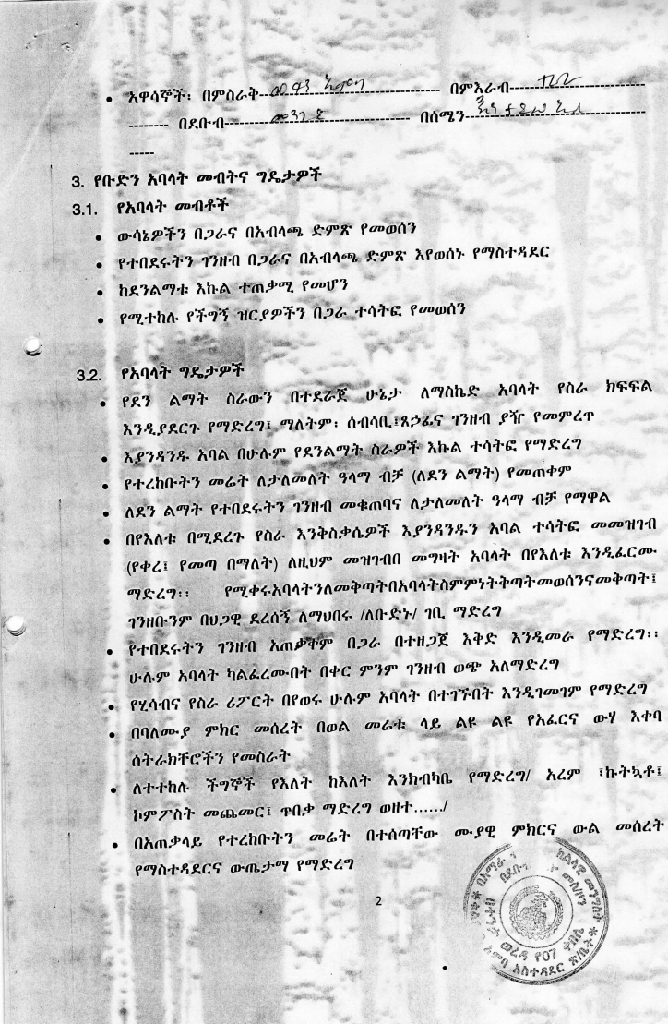 • አዋሳኞች፡ በምስራቅ--- በምእራብ---
--- በደቡብ--- በሰሜን---
-----
3. የቡድን አባላት መብትና ግዴታዎች
3.1. የአባላት መብቶች
• ውሳኔዎችን በጋራና በአብላጫ ድምጽ የመወሰን
• የተበደሩትን ገንዘብ በጋራና በአብላጫ ድምጽ እየወሰኑ የማስተዳደር
• ከደንልማቱ እኩል ተጠቃሚ የመሆን
• የሚተከሉ የችግኝ ዝርያዎችን በጋራ ተሳትፎ የመወሰን
3.2. የአባላት ግዴታዎች
• የደን ልማት ስራውን በተደራጀ ሁኔታ ለማስኬድ አባላት የስራ ክፍፍል
እንዲያደርጉ የማድረግ፤ ማለትም፡ ሰብሳቢ፤ጸኃፊና ገንዘብ ያዥ የመምረጥ
• እያንዳንዱ አባል በሁሉም የደንልማት ስራዎች እኩል ተሳትፎ የማድረግ
• የተረከቡትን መሬት ለታለመለት ዓላማ ብቻ (ለደን ልማት) የመጠቀም
• ለደን ልማት የተበደሩትን ገንዘብ መቁጠባና ለታለመለት ዓላማ ብቻ የማዋል
• በየእለቱ በሚደረጉ የስራ እንቅስቃሴዎች እያንዳንዱን አባል ተሳትፎ መመዝገብ
(የቀረ፤ የመጣ በማለት) ለዚህም መዝገብበ መግዛት አባላት በየእለቱ እንዲፈርሙ
ማድረግ፡፡ የሚቀሩአባላትንለመቅጣትበአባላትስምምነትቅጣትመወሰንናመቅጣት፤
ገንዘቡንም በህጋዊ ደረሰኝ ለማህበሩ /ለቡድኑ/ ገቢ ማድረግ
• የተበደሩትን ገንዘብ አጠቃቀም በጋራ በተዘጋጀ እቅድ እንዲመራ የማድረግ፡፡
ሁሉም አባላት ካልፈረሙበት በቀር ምንም ገንዘብ ወጭ አለማድረግ
• የሂሳብና የስራ ሪፖርት በየወሩ ሁሉም አባላት በተገኙበት እንዲገመገም የማድረግ
• በባለሙያ ምክር መሰረት በወል መሬቱ ላይ ልዩ ልዩ የአፈርና ውሃ እቀባ
ስትራክቸሮችን የመስራት
• ለተተከሉ ችግኞች የእለት ከእለት እንክብካቤ የማድረግ/ አረም ፤ኩትኳቶ፤
ኮምፖስት መጨመር፤ ጥበቃ ማድረግ ወዘተ....../
• በአጠቃላይ የተረከቡትን መሬት በተሰጣቸው ሙያዊ ምክርና ውል መሰረት
የማስተዳደርና ውጤታማ የማድረግ
2